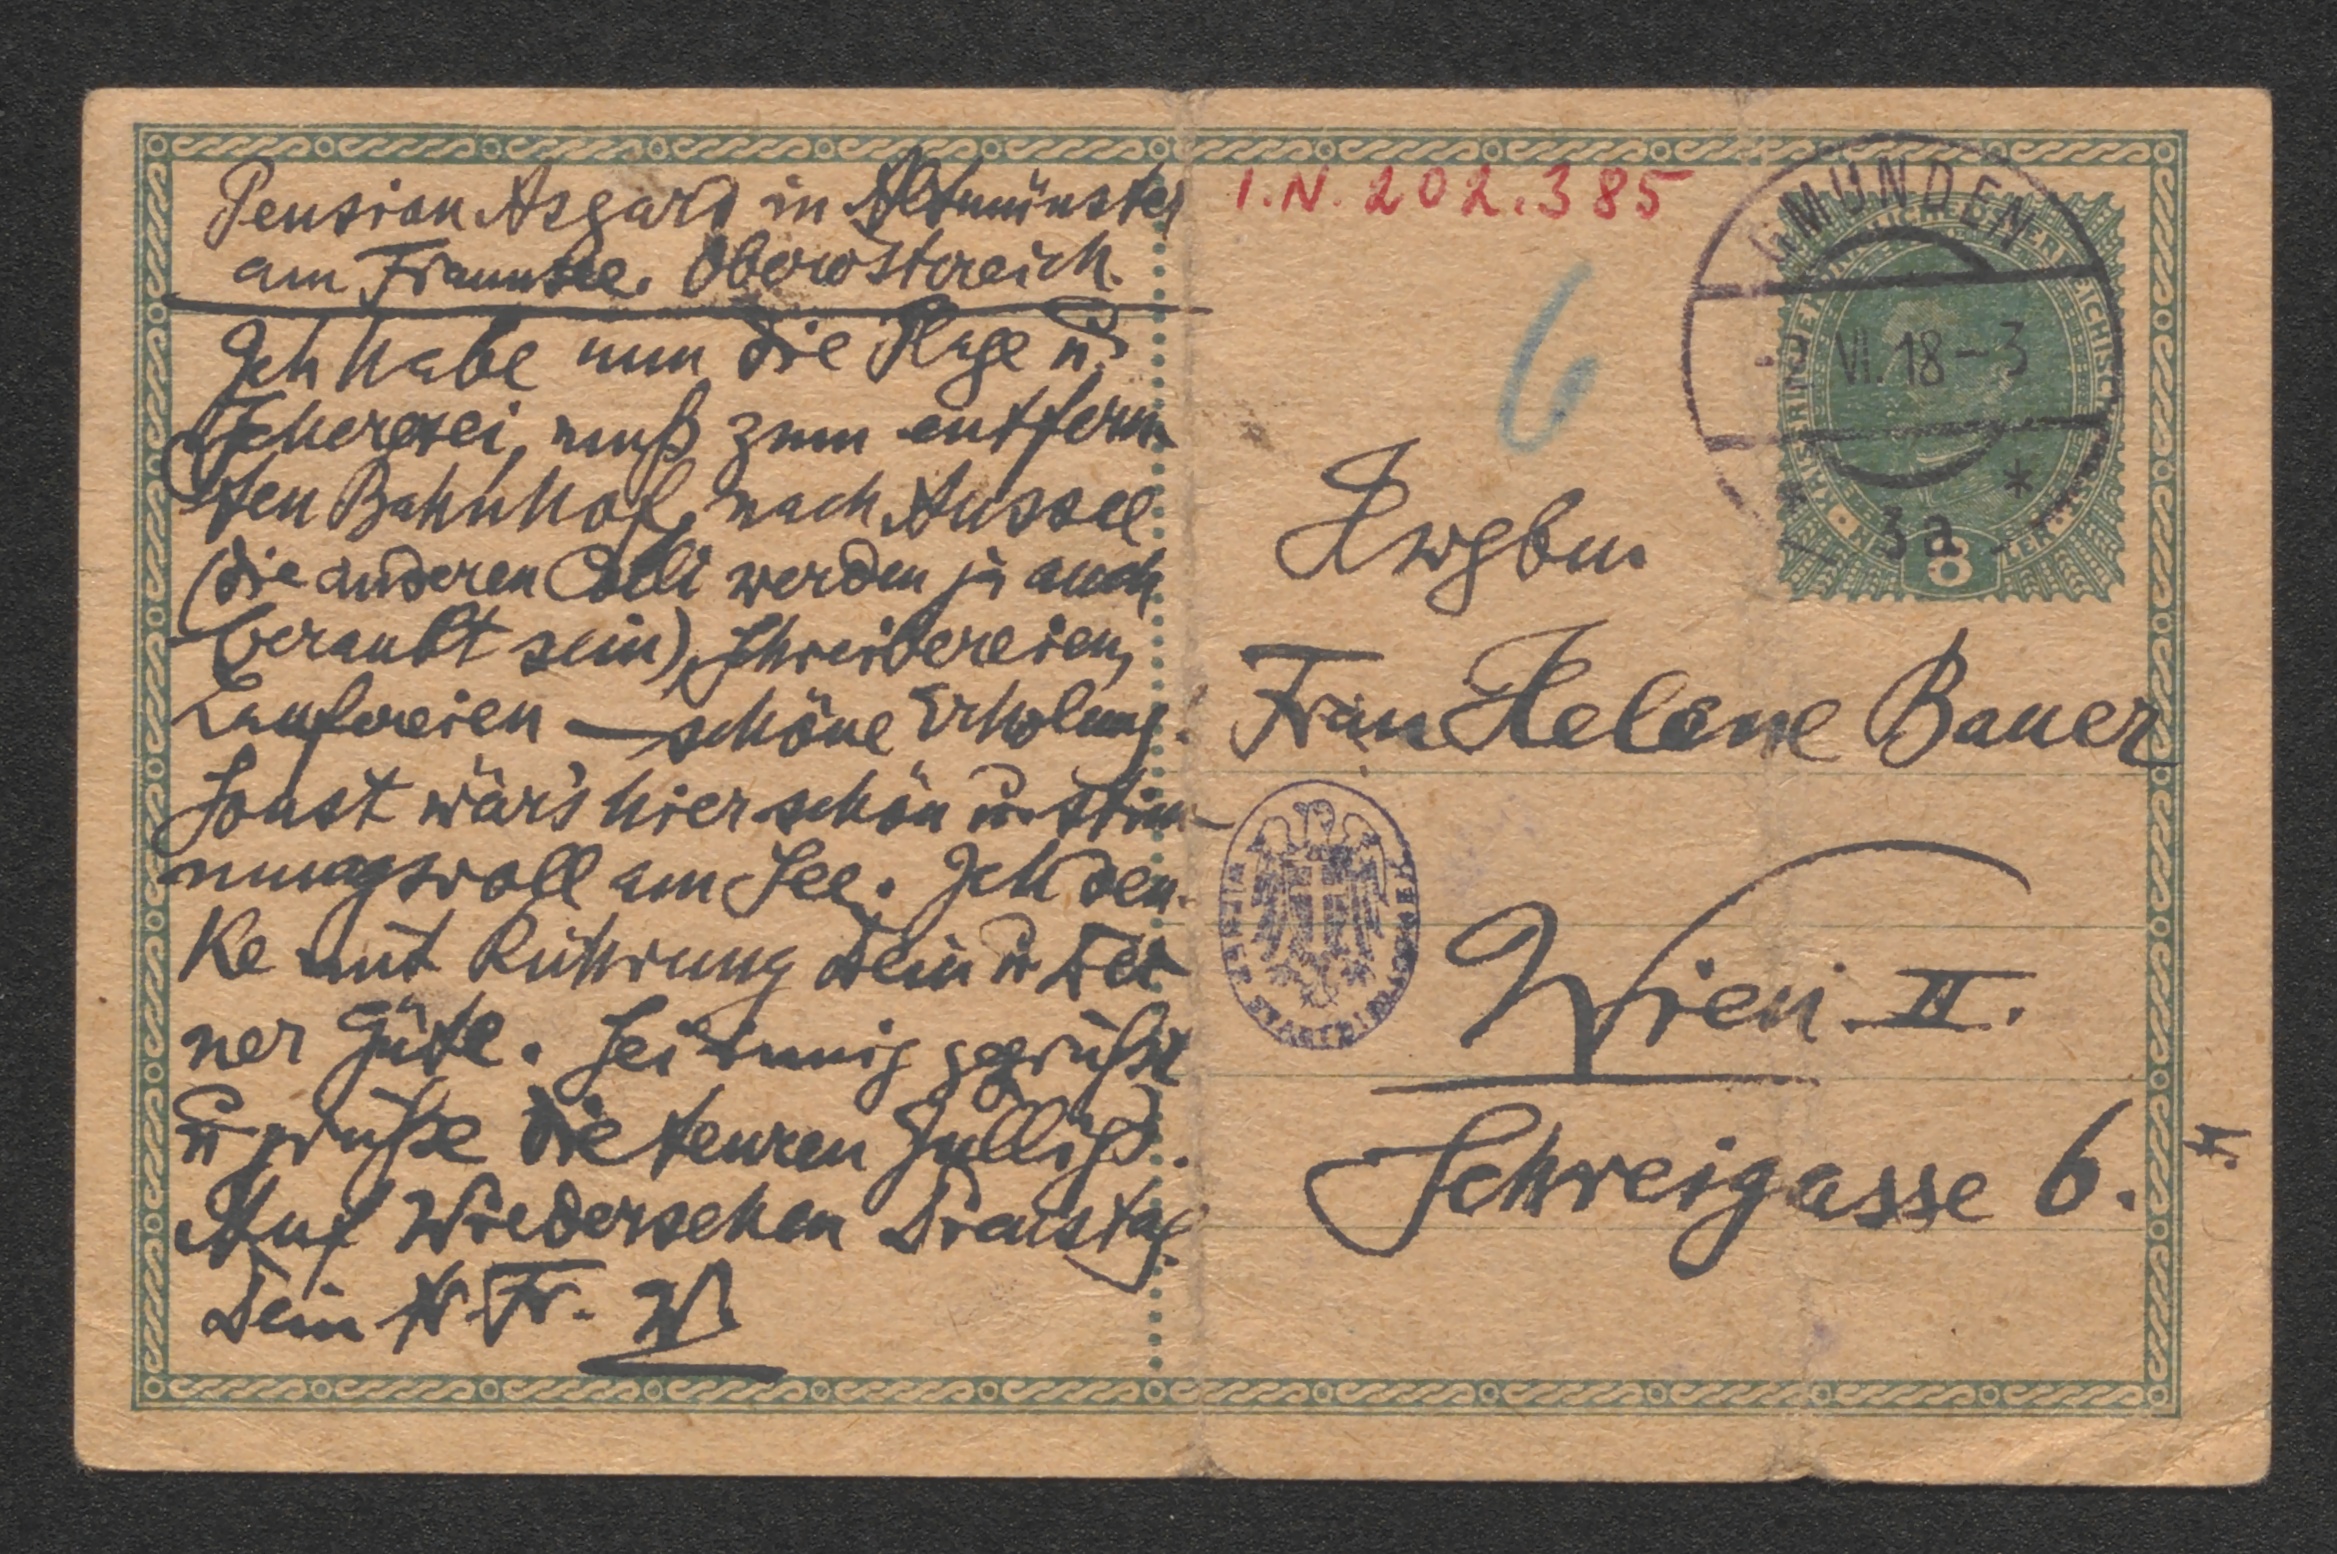 Pension Asgard in Altmünster
am Traunsee. Oberöstreich.
Ich habe nun die Plage u.
Schererei, muß zum entfern-
ten Bahnhof, nach Aussee
(die anderen Colli werden ja auch
beraubt sein), Schreibereien,
Laufereien – schöne Erholung.
Sonst wär's hier schön u. stim-
mungsvoll am See. Ich den-
ke mit Rührung dein u. Dei-
ner Güte. Sei innig gegrüßt
u grüße die teuren
Auf Wiedersehen Dienstag.
Dein Fr. W.
I.N. 202.385
6
GMUNDEN
VI. 18-3
3a
8
Hwgbn.
Frau Helene Bauer
Wien II.
Schreigasse 6.